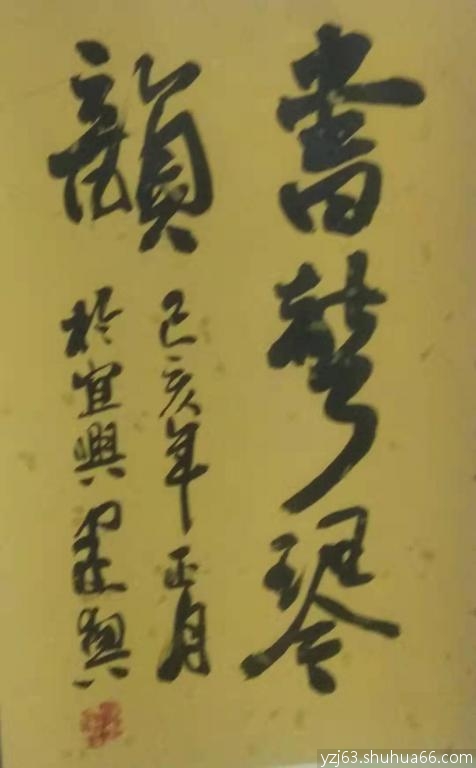 書聲琴
韻
己亥年正月
於宜興
yzj63.shuhua66.com